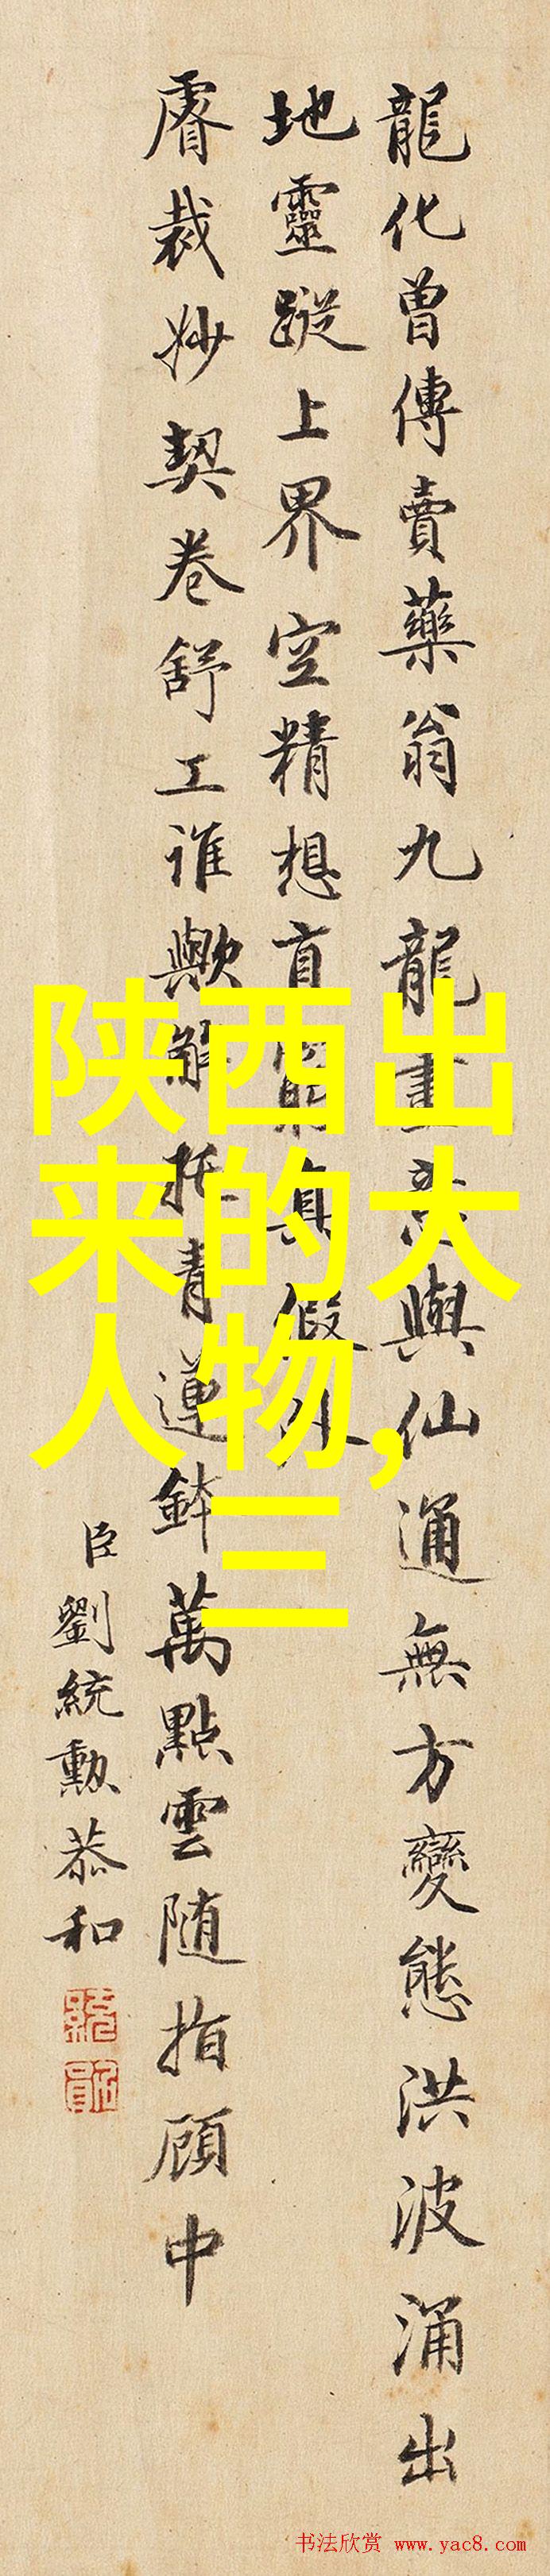 龍化曾傳賣藥翁九龍畫意與仙通無方變態洪波涌出
地靈蹤上界空精想直窮真假外
睿裁妙契卷舒工誰歟解托青蓮鉢萬點雲随指顧中
臣劉統勲恭和
陕西出
来的大
人物，
三
书法欣赏 www.yac8.com